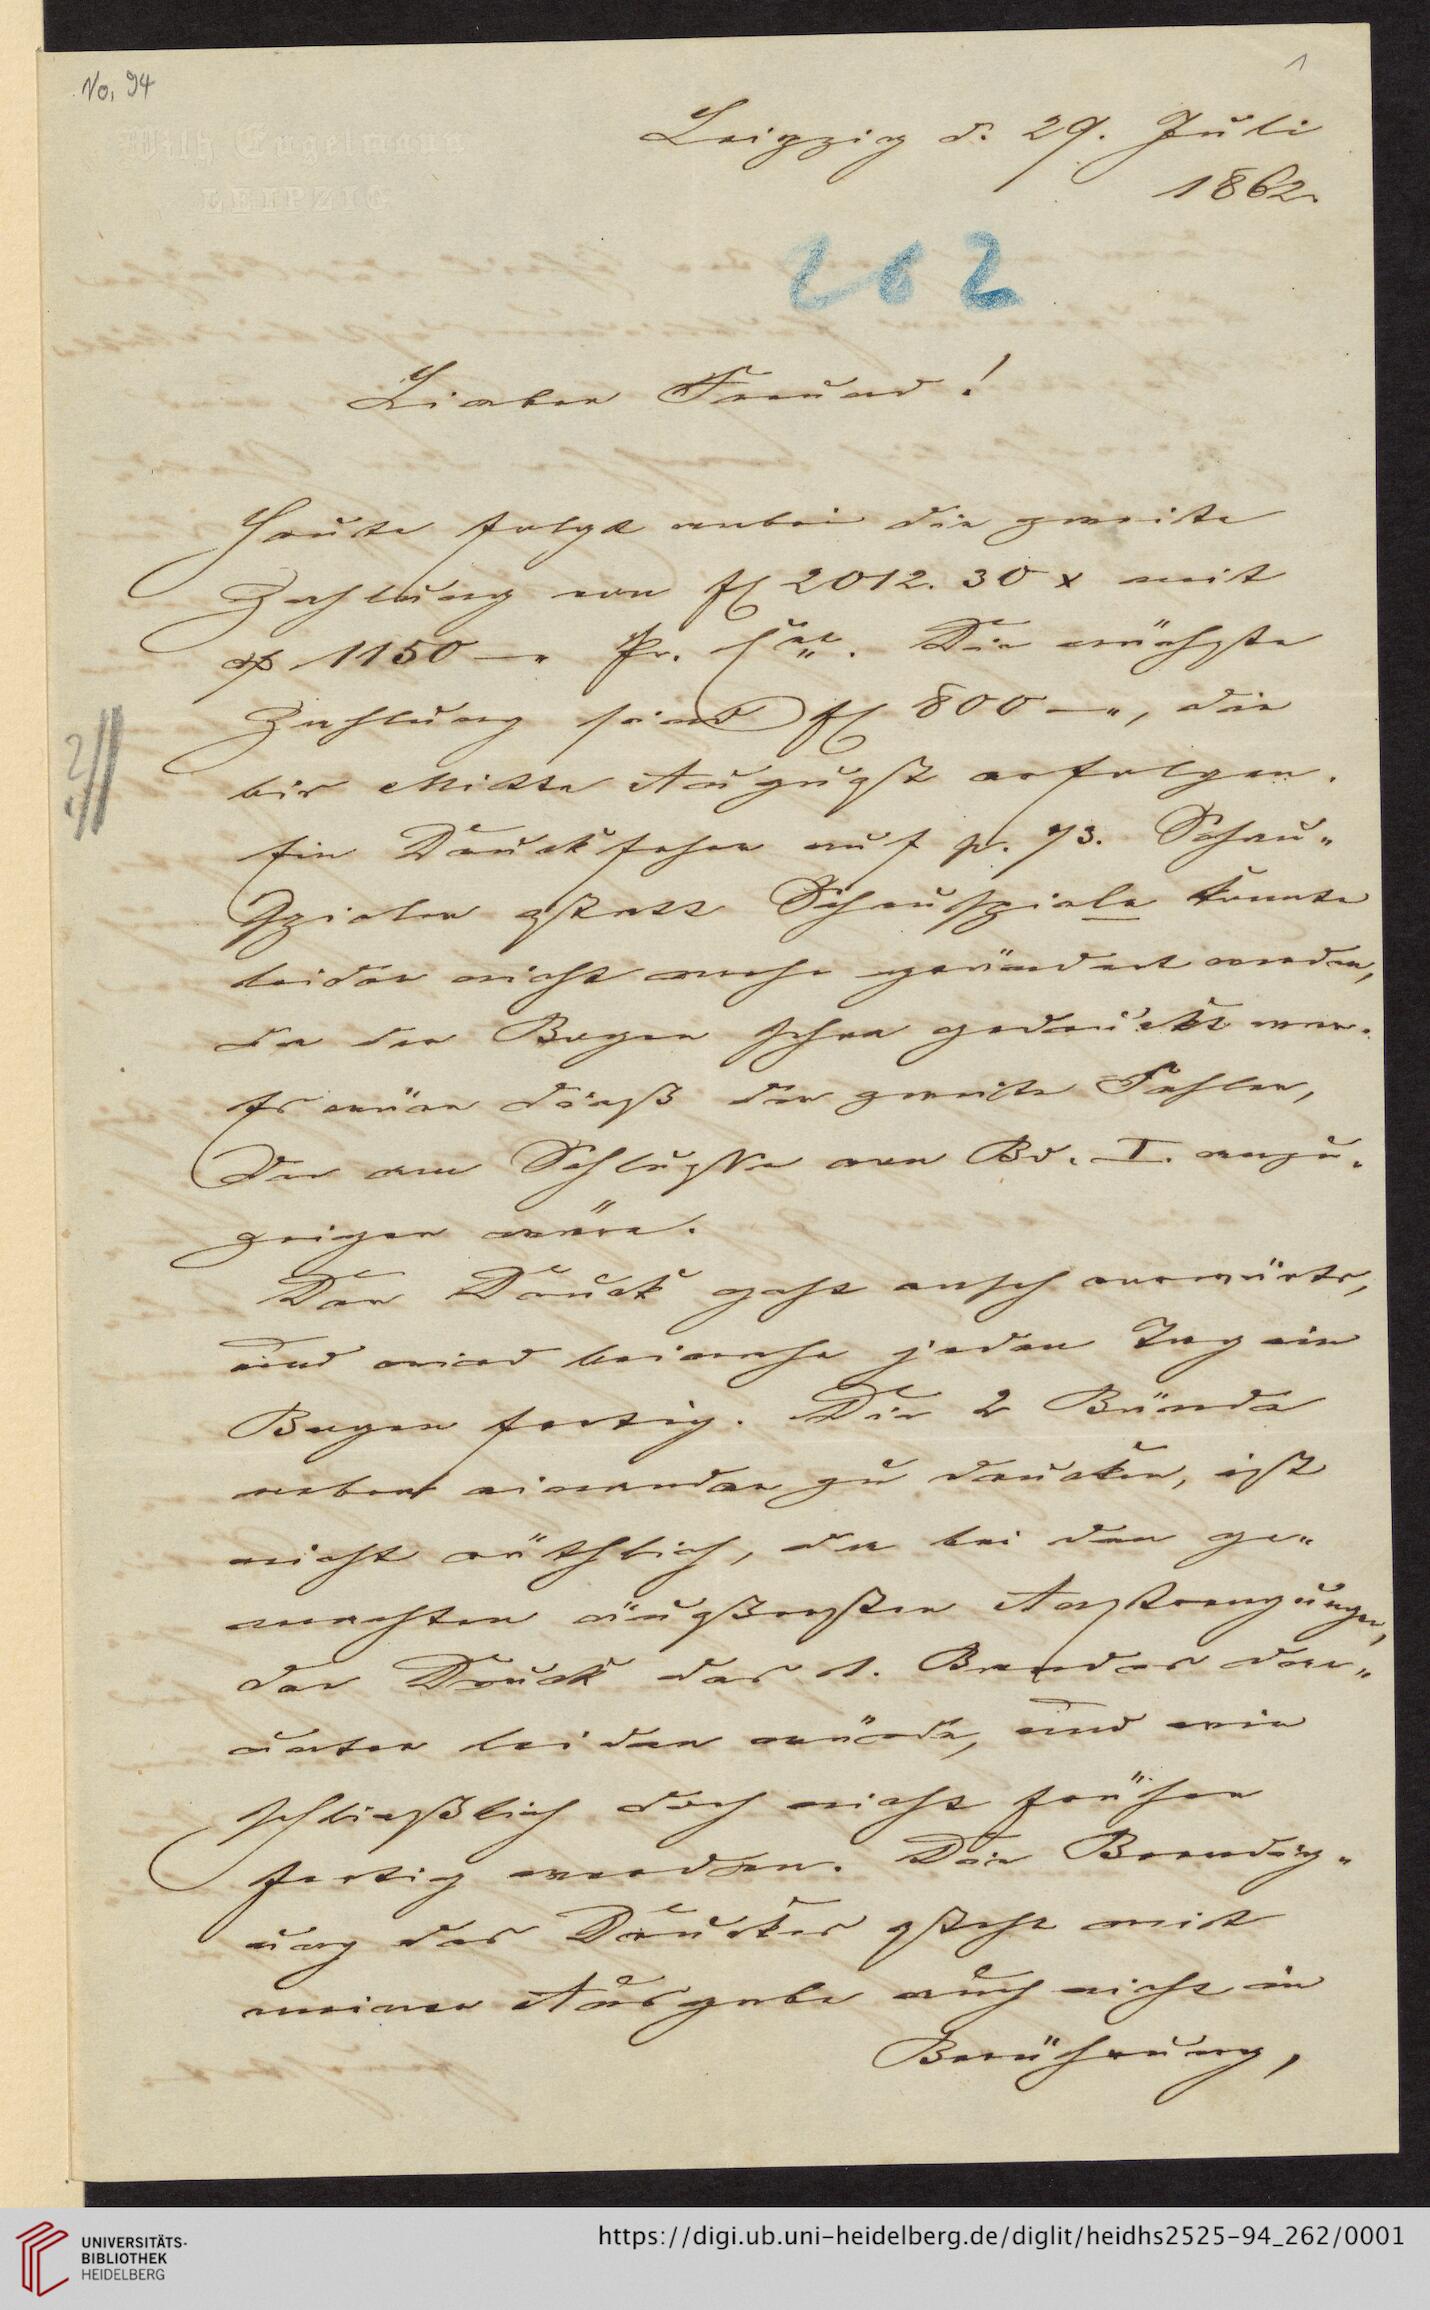 No. 94
1
Wilh Engelmann
LEIPZIG
Leipzig d. 29. Juli
1862.
262
Lieber Freund!
Heute folgt anbei die zweite
Zahlung von fl 2012. 30 x mit
1150 — Pr. Die nächste
Zahlung sind fl 800 —, die
bis Mitte August erfolgen.
Ein Druckfehler auf p. 73. Schau-
spieler statt Schauspiele konnte
leider nicht mehr geändert werden,
da der Bogen schon gedruckt war.
Es wäre dieß der zweite Fehler,
der am Schlusse von Bd. I. anzu-
zeigen wäre.
Der Druck geht rasch vorwärts,
und wird beinahe jeden Tag ein
Bogen fertig. Die 2 Bände
neben einander zu drucken, ist
nicht räthlich, da bei den ge-
machten äußersten Anstrengungen,
der Druck des 1. Bandes dar-
unter leiden würde, und wir
schließlich doch nicht früher
fertig werden. Die Beendig-
ung des Druckes steht mit
meiner Ausgabe auch nicht in
Berührung,
UNIVERSITÄTS-
BIBLIOTHEK
HEIDELBERG
https://digi.ub.uni-heidelberg.de/diglit/heidhs2525-94_262/0001